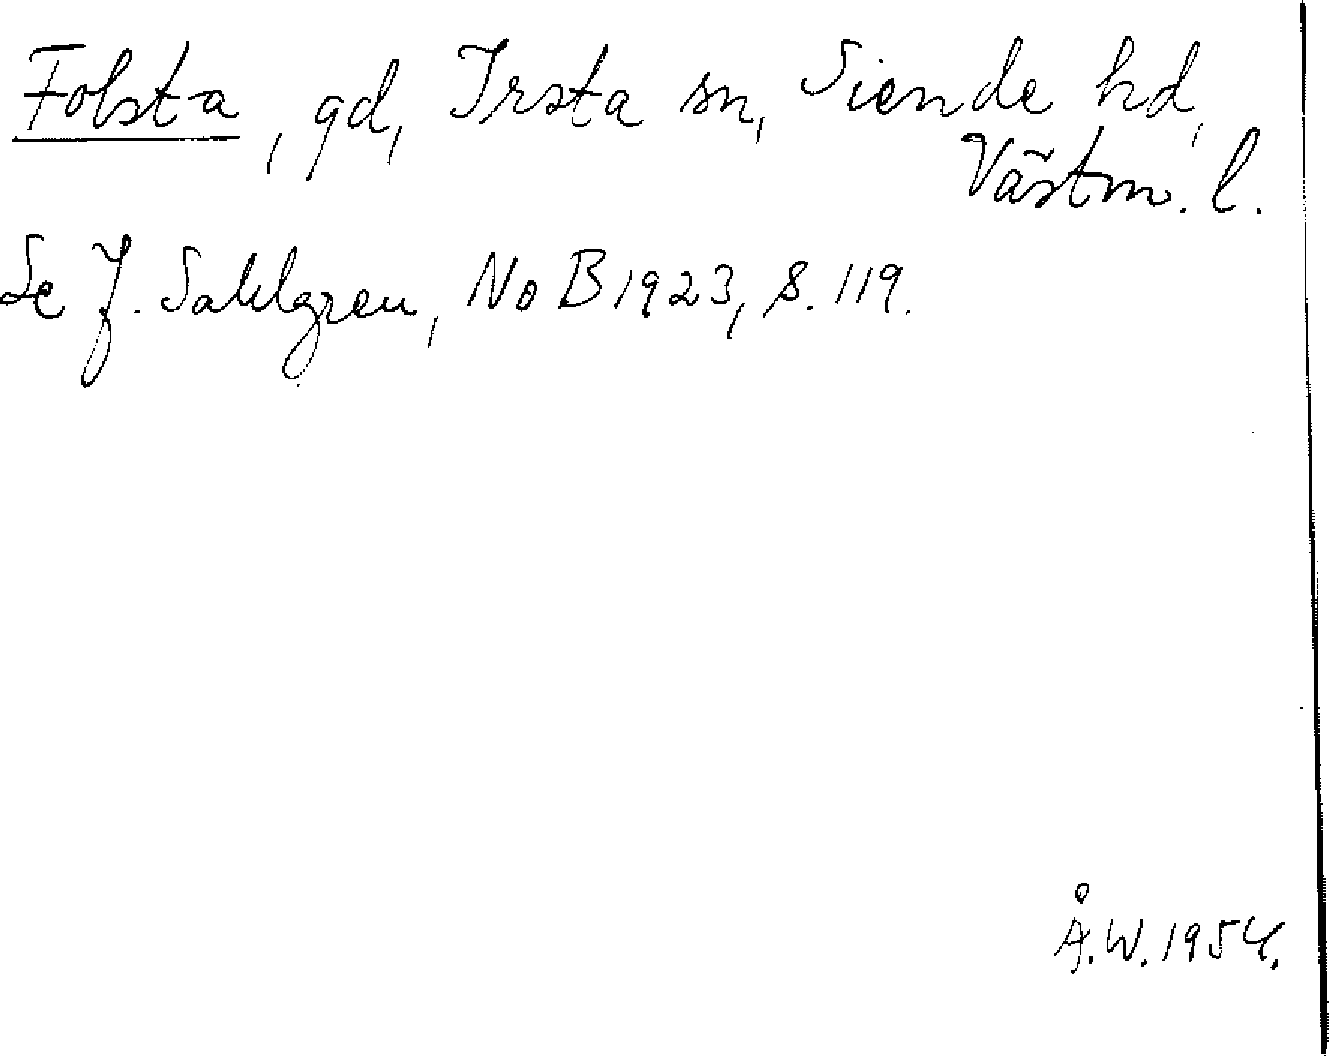 Folsta, gd, Irsta sn, Siende hd,
Västm. l.
Se J. Sahlgren, NoB 1923, s. 119.
Å.W. 1954.